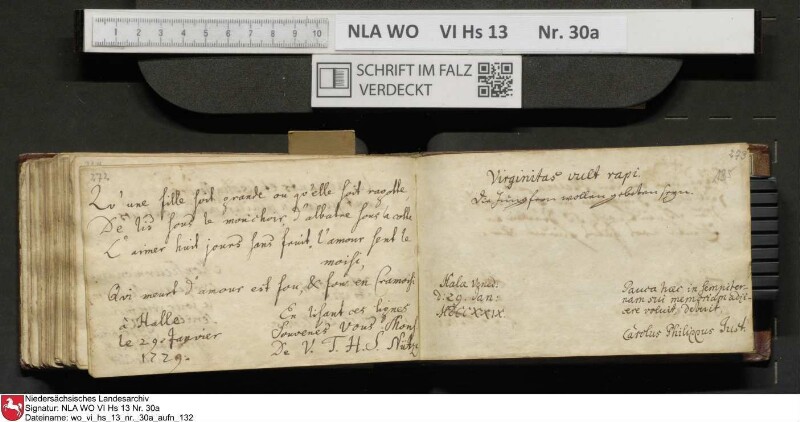 1 2 3 4 5 6 7 8 9 10
NLA WO VI Hs 13 Nr. 30a
SCHRIFT IM FALZ
VERDECKT
272
Qu'une fille soit grande ou qu'elle soit ragotte
De lis sous le mouchoir d'albatre sous la cotte
L'aimer huit jours sans fruit, l'amour sent le
moisi,
Qui meurt d'amour est fou, & fou en Cramoisi
à Halle
le 29. Janvier
1729.
En lisant ces lignes
Souvenés Vous Mons
De V. T. H. S.
273
Virginitas vult rapi
Die Jungfern wollen gebeten seyn.
Hala Vened.
d. 29. Jan:
MDCCXXIX.
Pauca haec in sempiter-
nam sui memoriam adji-
cere voluit, debuit
Carolus Philippus Just.
Niedersächsisches Landesarchiv
Signatur: NLA WO VI Hs 13 Nr. 30a
Dateiname: wo_vi_hs_13_nr._30a_aufn_132